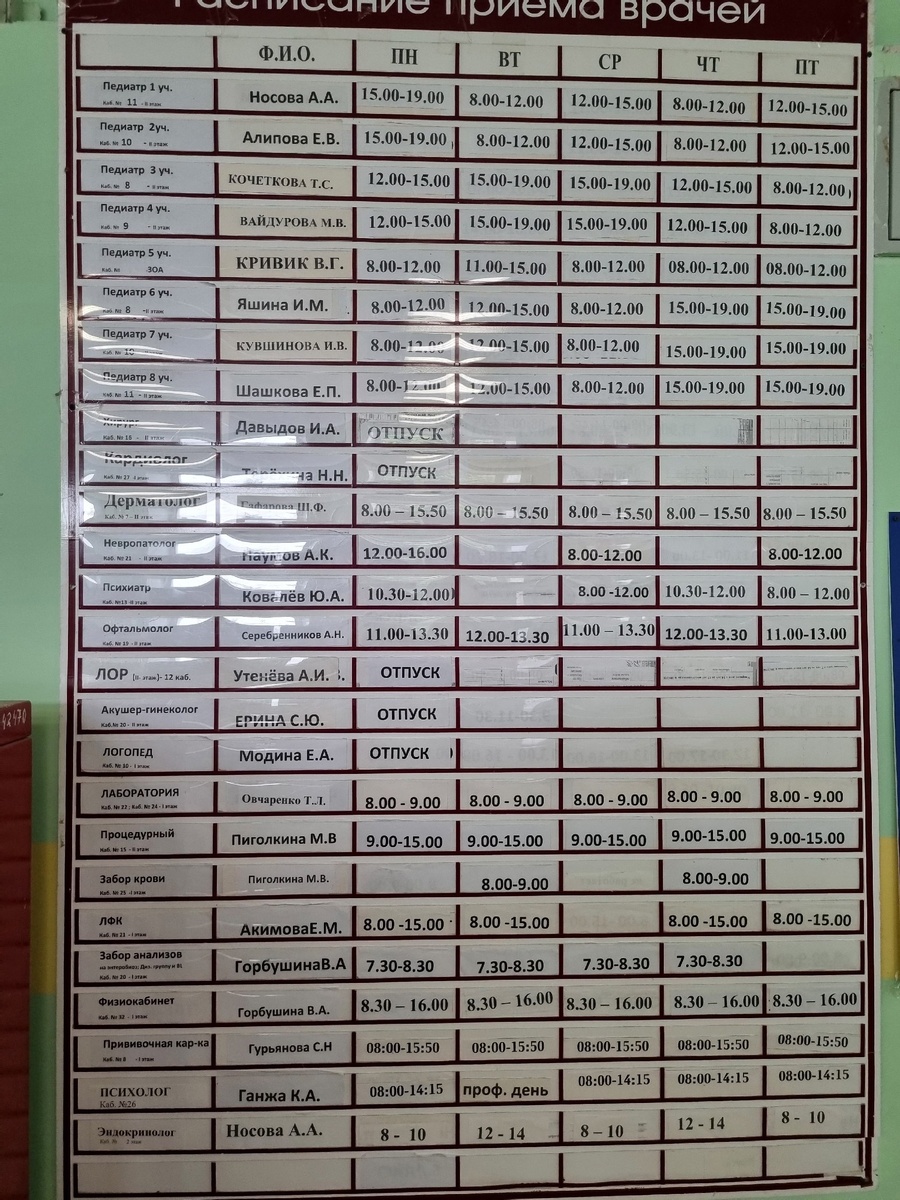 Расписание приема врачей
Ф.И.О. ПН ВТ СР ЧТ ПТ
Педиатр 1 уч. Носова А.А. 15.00-19.00 8.00-12.00 12.00-15.00 8.00-12.00 12.00-15.00
Каб. № 11 - II этаж
Педиатр 2уч. Алипова Е.В. 15.00-19.00 8.00-12.00 12.00-15.00 8.00-12.00 12.00-15.00
Каб. № 10 - II этаж
Педиатр 3 уч. КОЧЕТКОВА Т.С. 12.00-15.00 15.00-19.00 15.00-19.00 12.00-15.00 8.00-12.00
Каб. № 8 - II этаж
Педиатр 4 уч. ВАЙДУРОВА М.В. 12.00-15.00 15.00-19.00 15.00-19.00 12.00-15.00 8.00-12.00
Каб. № 9 - II этаж
Педиатр 5 уч. КРИВИК В.Г. 8.00-12.00 11.00-15.00 8.00-12.00 08.00-12.00 08.00-12.00
Каб. № ЗОА
Педиатр 6 уч. Яшина И.М. 8.00-12.00 12.00-15.00 8.00-12.00 15.00-19.00 15.00-19.00
Каб. № 8 -II этаж
Педиатр 7 уч. КУВШИНОВА И.В. 8.00-12.00 12.00-15.00 8.00-12.00 15.00-19.00 15.00-19.00
Каб. № 10 - II этаж
Педиатр 8 уч. Шашкова Е.П. 8.00-12.00 12.00-15.00 8.00-12.00 15.00-19.00 15.00-19.00
Каб. № 11 - II этаж
Хирург Давыдов И.А. ОТПУСК
Каб. № 18 - II этаж
Кардиолог Н.Н. ОТПУСК
Каб. № 27 -I этаж
Дерматолог Гафарова Ш.Ф. 8.00 – 15.50 8.00 – 15.50 8.00 – 15.50 8.00 – 15.50 8.00 – 15.50
Каб. № 7 – II этаж
Невропатолог Наумов А.К. 12.00-16.00 8.00-12.00 8.00-12.00
Каб. № 21 - II этаж
Психиатр Ковалёв Ю.А. 10.30-12.00 8.00 -12.00 10.30-12.00 8.00 – 12.00
Каб. №13 -II этаж
Офтальмолог Серебренников А.Н. 11.00-13.30 12.00-13.30 11.00 – 13.30 12.00-13.30 11.00-13.00
Каб. № 19 – II этаж
ЛОР (II- этаж)- 12 каб. Утенёва А.И. ОТПУСК
Акушер-гинеколог ЕРИНА С.Ю. ОТПУСК
Каб. № 20 – II этаж
ЛОГОПЕД Модина Е.А. ОТПУСК
Каб. № 30 - I этаж
ЛАБОРАТОРИЯ Овчаренко Т.Л. 8.00 - 9.00 8.00 - 9.00 8.00 - 9.00 8.00 - 9.00 8.00 - 9.00
Каб. № 22 ; Каб. № 24 - I этаж
Процедурный Пиголкина М.В 9.00-15.00 9.00-15.00 9.00-15.00 9.00-15.00 9.00-15.00
Каб. № 15 - II этаж
Забор крови Пиголкина М.В. 8.00-9.00 8.00-9.00
Каб. № 25 -I этаж
ЛФК АкимоваЕ.М. 8.00 -15.00 8.00 -15.00 8.00 -15.00 8.00 -15.00
Каб. № 21 - I этаж
Забор анализов ГорбушинаВ.А 7.30-8.30 7.30-8.30 7.30-8.30 7.30-8.30
на энтеробиоз; Диз. группу и BL
Каб. № 20 - I этаж
Физиокабинет Горбушина В.А. 8.30 – 16.00 8.30 – 16.00 8.30 – 16.00 8.30 – 16.00 8.30 – 16.00
Каб. № 32 - I этаж
Прививочная кар-ка Гурьянова С.Н 08:00-15:50 08:00-15:50 08:00-15:50 08:00-15:50 08:00-15:50
Каб. № 8 - I этаж
ПСИХОЛОГ Ганжа К.А. 08:00-14:15 проф. день 08:00-14:15 08:00-14:15 08:00-14:15
Каб. №26
Эндокринолог Носова А.А. 8 - 10 12 - 14 8 – 10 12 - 14 8 - 10
Каб. № 2 этаж
42470